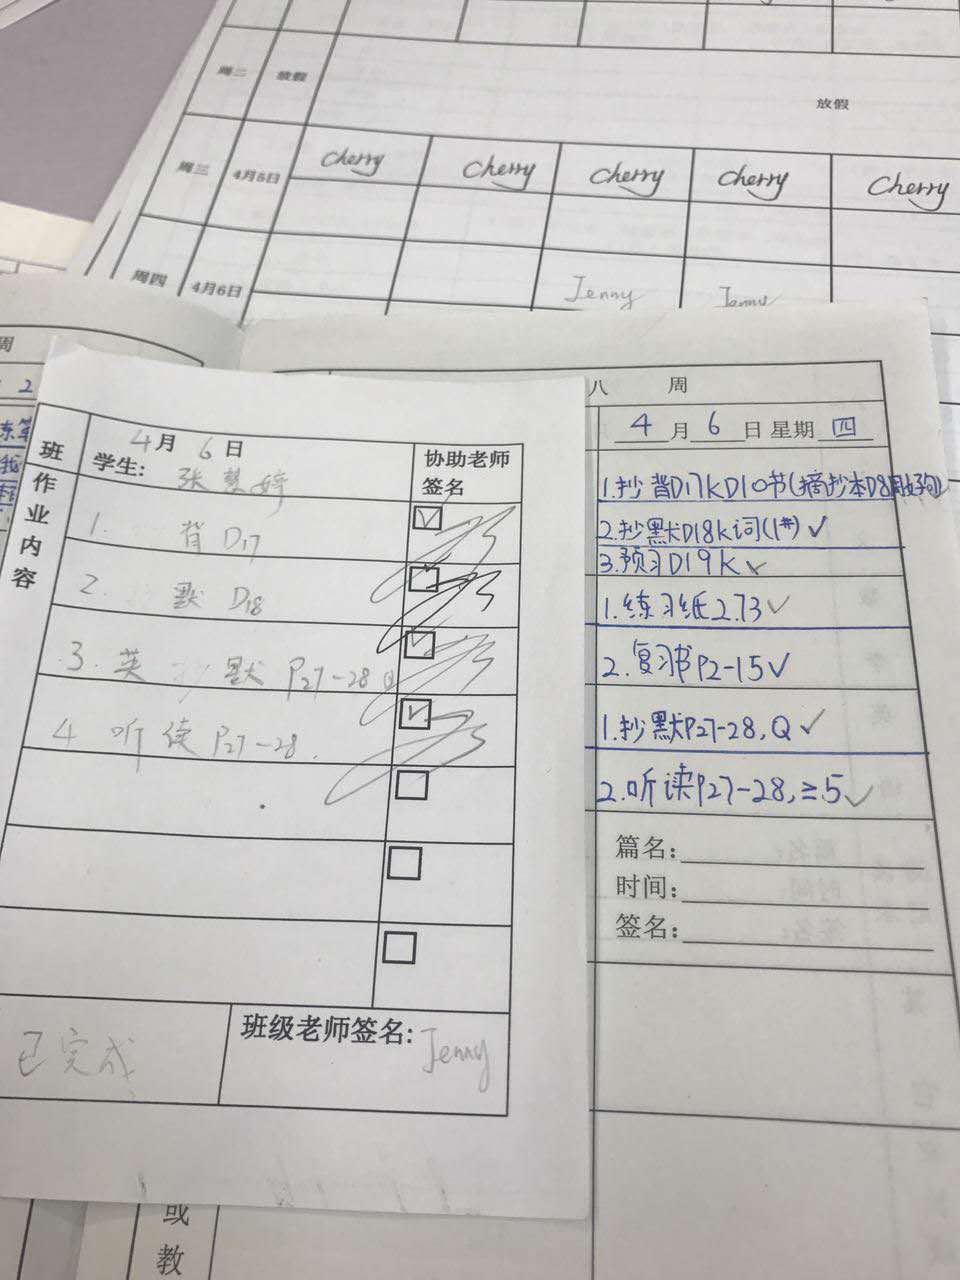 周二 放假
放假
周三 4月5日 Cherry Cherry Cherry Cherry Cherry
周四 4月6日 Jenny Jenny
周
2
班作业内容
4月6日
学生: 张慧婷
协助老师签名
1. 背D17
2. 默D18
3. 英 抄默P27-28
4 听读P27-28.
已完成
班级老师签名: Jenny
八 周
4月6日 星期四
1.抄背D17kD10节(摘抄本D8
2.抄默D18k词(1#)✓
3.预习D19k✓
1.练习纸2.73✓
2.复习书P2-15✓
1.抄默P27-28,Q✓
2.听读P27-28,≥5✓
篇名:
时间:
签名:
或
教